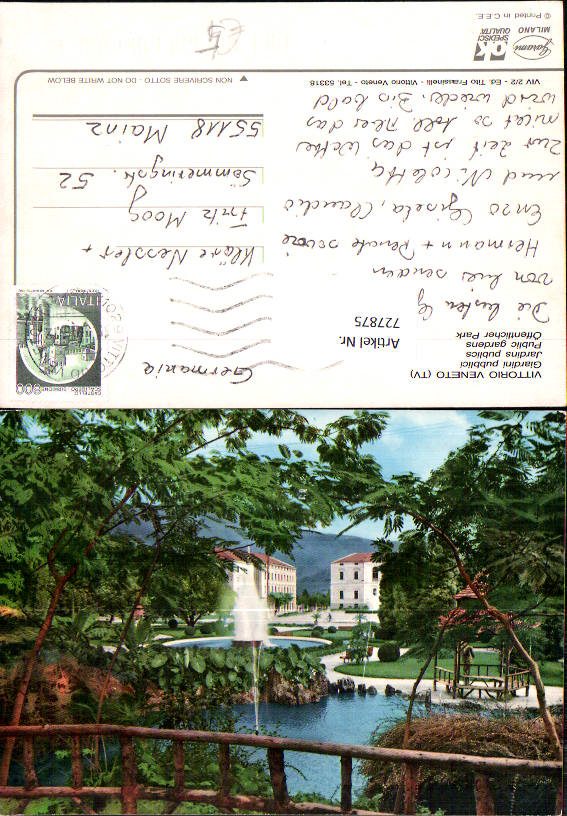 VITTORIO VENETO (TV)
Giardini pubblici
Jardins publics
Public gardens
Öffentlicher Park
Artikel Nr.
727875
Die besten
von hier senden
Hermann + Renate sowie
Enzo Gisela, Claudio
und Nicoletta
Zur Zeit ist das Wetter
mild so soll das
wird wieder. Bis bald
VIV 2/2 - Ed. Tito Frassinelli - Vittorio Veneto - Tel. 53318
Garami
MILANO
OK
SPEDISCI
QUALITÀ
© Printed in C.E.E.
CASTELLO
SCALIGERO SIRMIONE
800
ITALIA
Germania
Kläre Nessler +
Fritz Moog
Sömmeringstr. 52
55118 Mainz
NON SCRIVERE SOTTO - DO NOT WRITE BELOW